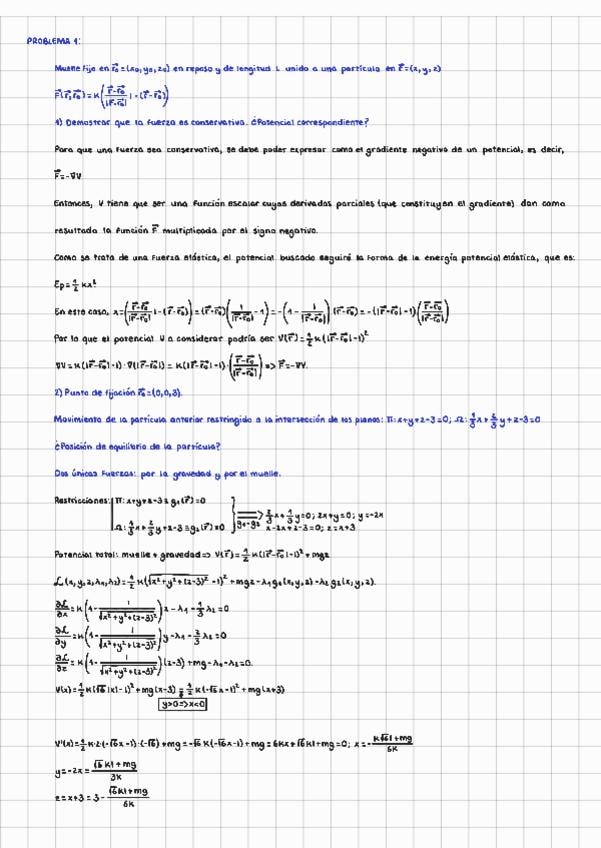 PROBLEMA 1:
Muelle fijo en r⃗₀=(x₀,y₀,z₀) en reposo y de longitud l unido a una partícula en r⃗=(x,y,z)
F⃗(r⃗,r⃗₀)=K((r⃗-r⃗₀)/|r⃗-r⃗₀| l-(r⃗-r⃗₀))
1) Demostrar que la fuerza es conservativa. ¿Potencial correspondiente?
Para que una fuerza sea conservativa, se debe poder expresar como el gradiente negativo de un potencial, es decir,
F⃗=-∇V
Entonces, V tiene que ser una función escalar cuyas derivadas parciales (que constituyen el gradiente) dan como
resultado la función F⃗ multiplicada por el signo negativo.
Como se trata de una fuerza elástica, el potencial buscado seguirá la forma de la energía potencial elástica, que es:
Ep=1/2 kx²
En este caso, x=((r⃗-r⃗₀)/|r⃗-r⃗₀| l-(r⃗-r⃗₀))=(r⃗-r⃗₀)(l/|r⃗-r⃗₀|-1)=-(1-l/|r⃗-r⃗₀|)(r⃗-r⃗₀)=-(|r⃗-r⃗₀|-l)((r⃗-r⃗₀)/|r⃗-r⃗₀|)
Por lo que el potencial V a considerar podría ser V(r⃗)=1/2 K(|r⃗-r⃗₀|-l)²
∇V=K(|r⃗-r⃗₀|-l)·∇(|r⃗-r⃗₀|-l)=K(|r⃗-r⃗₀|-l)·((r⃗-r⃗₀)/|r⃗-r⃗₀|)=>F⃗=-∇V.
2) Punto de fijación r⃗₀=(0,0,3).
Movimiento de la partícula anterior restringido a la intersección de los planos: Π:x+y+z-3=0; Ω:1/3x+2/3y+z-3=0
¿Posición de equilibrio de la partícula?
Dos únicas fuerzas: por la gravedad y por el muelle.
Restricciones: Π:x+y+z-3≡g₁(r⃗)=0
Ω:1/3x+2/3y+z-3≡g₂(r⃗)=0
g₁-g₂ => 2/3x+1/3y=0; 2x+y=0; y=-2x
x-2x+z-3=0; z=x+3
Potencial total: muelle + gravedad=> V(r⃗)=1/2 K(|r⃗-r⃗₀|-l)²+mgz
ℒ(x,y,z,λ₁,λ₂)=1/2 K(√(x²+y²+(z-3)²)-l)²+mgz-λ₁g₁(x,y,z)-λ₂g₂(x,y,z).
∂ℒ/∂x=K(1-l/√(x²+y²+(z-3)²))x-λ₁-1/3λ₂=0
∂ℒ/∂y=K(1-l/√(x²+y²+(z-3)²))y-λ₁-2/3λ₂=0
∂ℒ/∂z=K(1-l/√(x²+y²+(z-3)²))(z-3)+mg-λ₁-λ₂=0.
V(x)=1/2 K(√6|x|-l)²+mg(x-3)=1/2 K(-√6x-l)²+mg(x+3)
y>0=>x<0
V'(x)=1/2 K·2·(-√6x-l)·(-√6)+mg=-√6K(-√6x-l)+mg=6Kx+√6Kl+mg=0; x=-(K√6l+mg)/6K
y=-2x=(√6Kl+mg)/3K
z=x+3=3-(√6Kl+mg)/6K